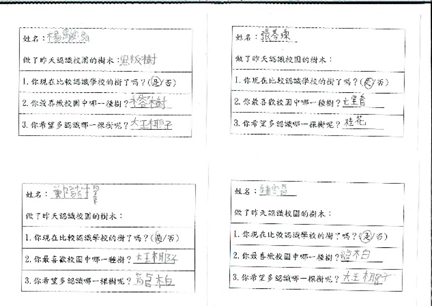 姓名：
做了昨天認識校園的樹木：黑板樹
1.你現在比較認識學校的樹了嗎？(是/否)
2.你最喜歡校園中哪一種樹？榕樹
3.你希望多認識哪一棵樹呢？大王椰子
姓名：
做了昨天認識校園的樹木：
1.你現在比較認識學校的樹了嗎？(是/否)
2.你最喜歡校園中哪一種樹？
3.你希望多認識哪一棵樹呢？桂花
姓名：
做了昨天認識校園的樹木：
1.你現在比較認識學校的樹了嗎？(是/否)
2.你最喜歡校園中哪一種樹？大王椰子
3.你希望多認識哪一棵樹呢？烏臼
姓名：
做了昨天認識校園的樹木：
1.你現在比較認識學校的樹了嗎？(是/否)
2.你最喜歡校園中哪一種樹？
3.你希望多認識哪一棵樹呢？大王椰子